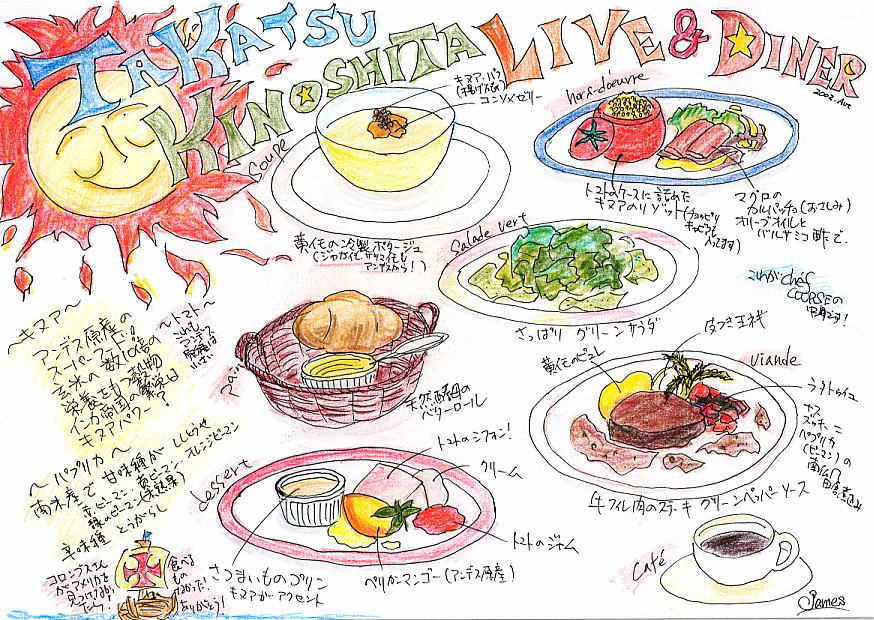 TAKATSU
KINOSHITA LIVE & DINER
2002. Apr
Soupe
キヌア・パフ
(揚げたもの)
コンソメゼリー
黄イモの冷製ポタージュ
(ジャガイモ、サツマイモも
アンデスから!)
hors-d'oeuvre
トマトのケースに詰めた
キヌアのリゾット(チョッピリ
入ってます)
マグロの
カルパッチョ(おさしみ)
オリーブオイルと
バルサミコ酢で、
Salade vert
さっぱり グリーンサラダ
これがchef
COURSEの
中身です!
〜キヌア〜
アンデス原産の
スーパーフード!!
玄米の数10倍の
栄養をもつ穀物
インカ帝国の繁栄は
キヌアパワー?
〜トマト〜
これも
アンデス
原種は
小さい
pain
天然酵母の
バターロール
viande
黄イモのピュレ
皮つき玉ネギ
ラタトゥイユ
ナス
ズッキーニ
パプリカ
(ピーマン)の
南仏風
田舎煮込み
牛フィレ肉のステーキ グリーンペパーソース
〜パプリカ〜
南米産で 甘味種が
赤ピーマン・黄ピーマン・オレンジピーマン
緑のピーマン(未熟果)
辛味種 とうがらし
dessert
トマトのシフォン!
クリーム
トマトのジャム
ペリカンマンゴー(アンデス原産)
さつまいものプリン
キヌアがアクセント
Café
コロンブスさん
がアメリカを
見つけなかっ
たら!
食べる
もの
なかった!
ありがとう!
James